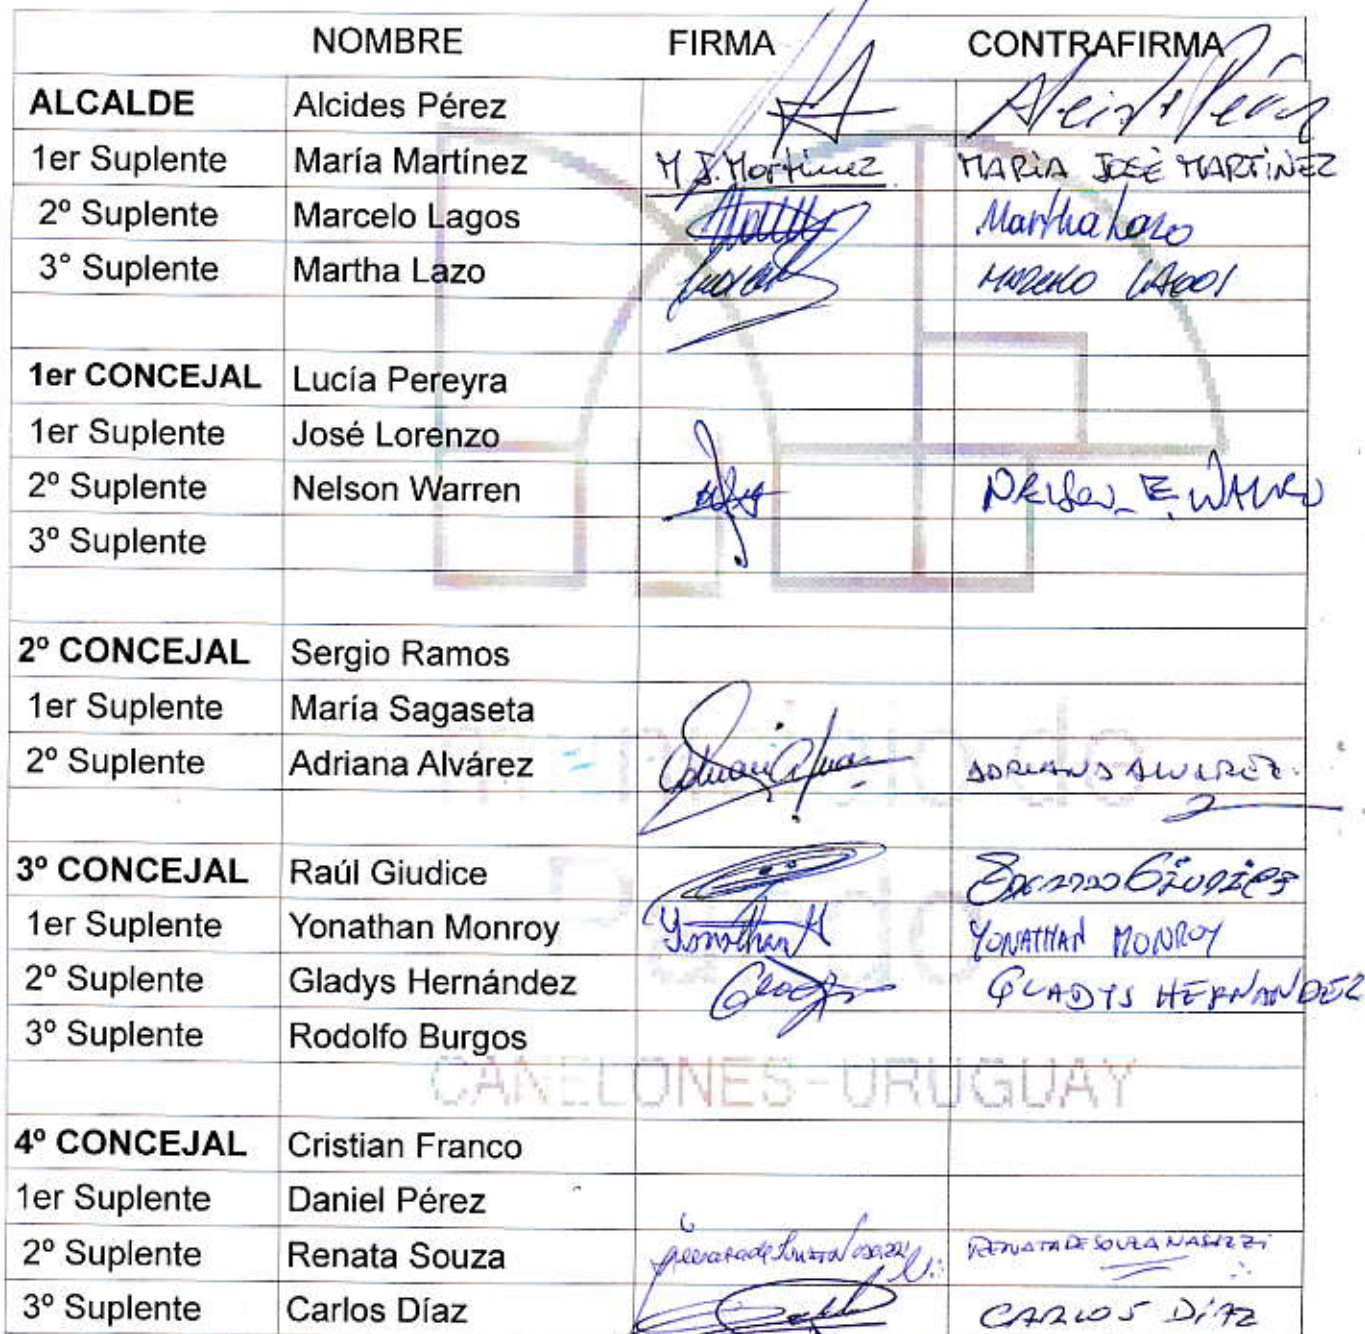 NOMBRE FIRMA CONTRAFIRMA
ALCALDE Alcides Pérez
1er Suplente María Martínez M J. Martínez MARIA JOSÉ MARTíNEZ
2º Suplente Marcelo Lagos Martha Lazo
3° Suplente Martha Lazo
1er CONCEJAL Lucía Pereyra
1er Suplente José Lorenzo
2º Suplente Nelson Warren
3º Suplente
2º CONCEJAL Sergio Ramos
1er Suplente María Sagaseta
2º Suplente Adriana Alvárez ADRIANA ALVAREZ.
3º CONCEJAL Raúl Giudice
1er Suplente Yonathan Monroy Yonathan M YONATHAN MONROY
2º Suplente Gladys Hernández GLADYS HERNANDEZ
3º Suplente Rodolfo Burgos
CANELONES-URUGUAY
4º CONCEJAL Cristian Franco
1er Suplente Daniel Pérez
2º Suplente Renata Souza
3º Suplente Carlos Díaz CARLOS DíAZ